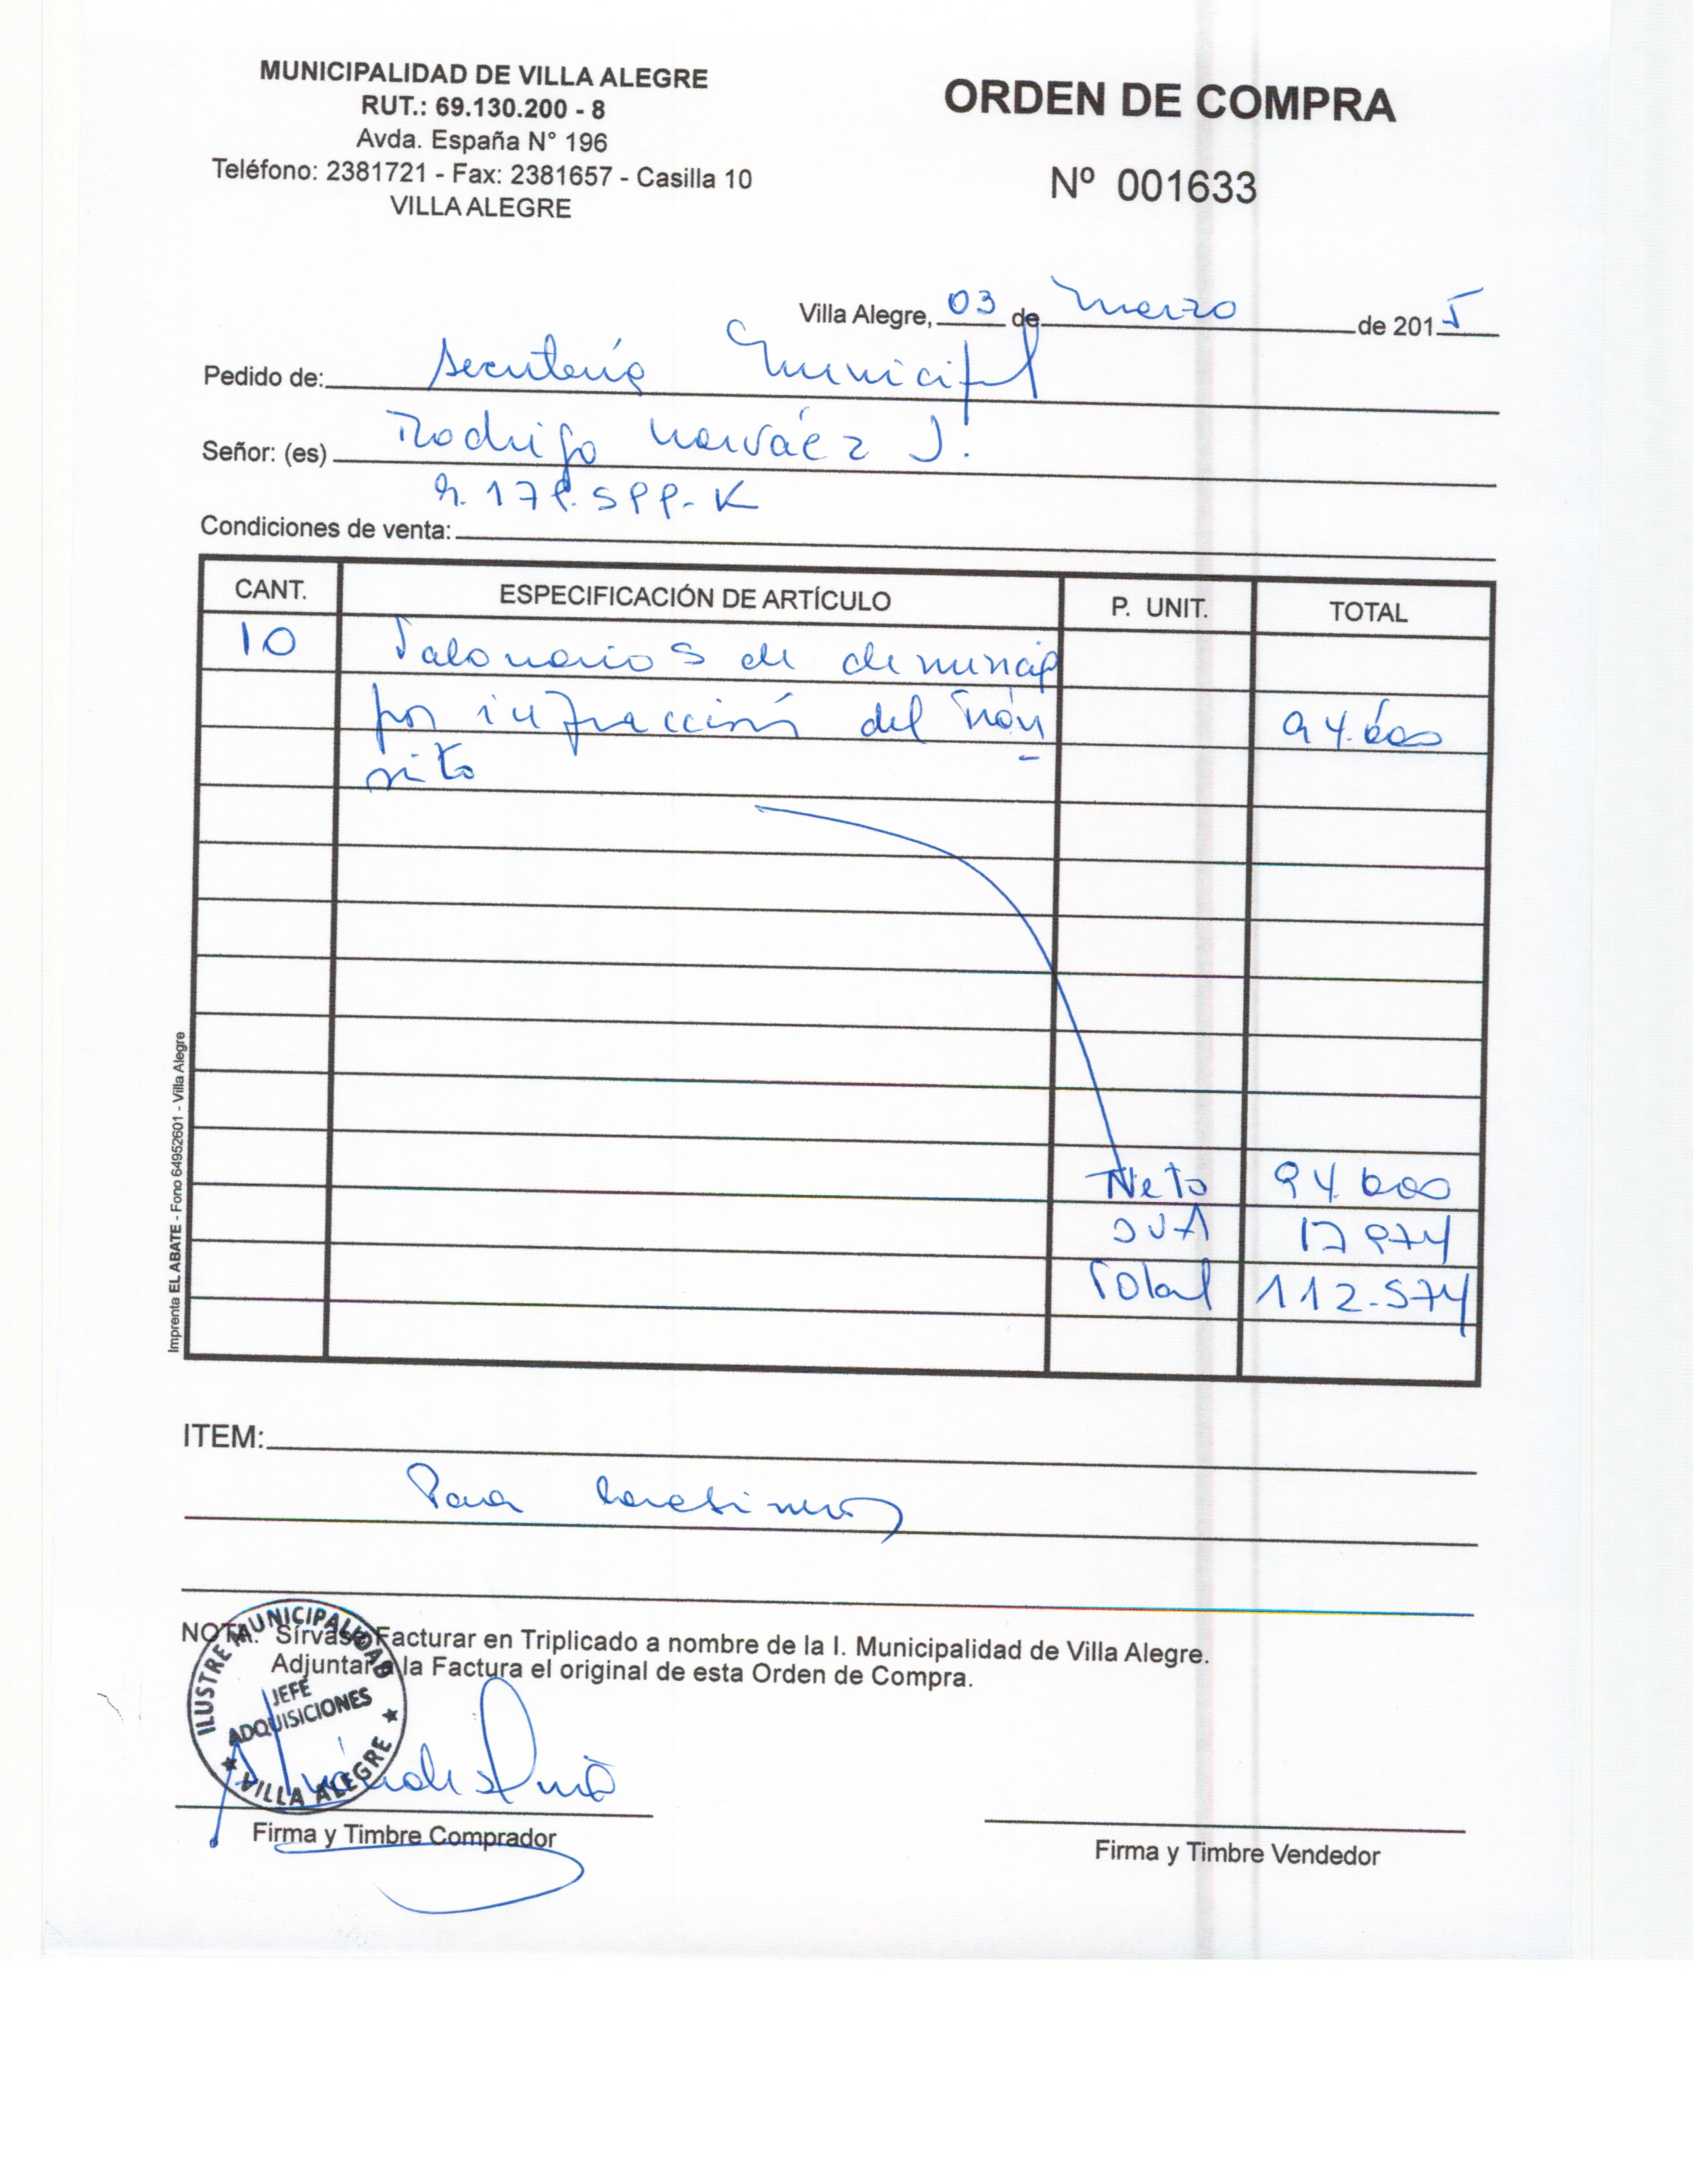 MUNICIPALIDAD DE VILLA ALEGRE
RUT.: 69.130.200 - 8
Avda. España N° 196
Teléfono: 2381721 - Fax: 2381657 - Casilla 10
VILLA ALEGRE
ORDEN DE COMPRA
Nº 001633
Villa Alegre, 03 de Marzo de 2015
Pedido de: Secretaría Municipal
Señor: (es) Rodrigo Narváez J.
Condiciones de venta:
CANT. ESPECIFICACIÓN DE ARTÍCULO P. UNIT. TOTAL
10 Talonarios de denuncia
por infracción del Trán 94.600
sito
Neto 94.600
IVA 17.974
Total 112.574
Imprenta EL ABATE - Fono 64952601 - Villa Alegre
ITEM:
Para Carabineros
NOTA: Sírvase Facturar en Triplicado a nombre de la I. Municipalidad de Villa Alegre.
Adjuntar a la Factura el original de esta Orden de Compra.
ILUSTRE MUNICIPALIDAD
JEFE
ADQUISICIONES
VILLA ALEGRE
Firma y Timbre Comprador
Firma y Timbre Vendedor